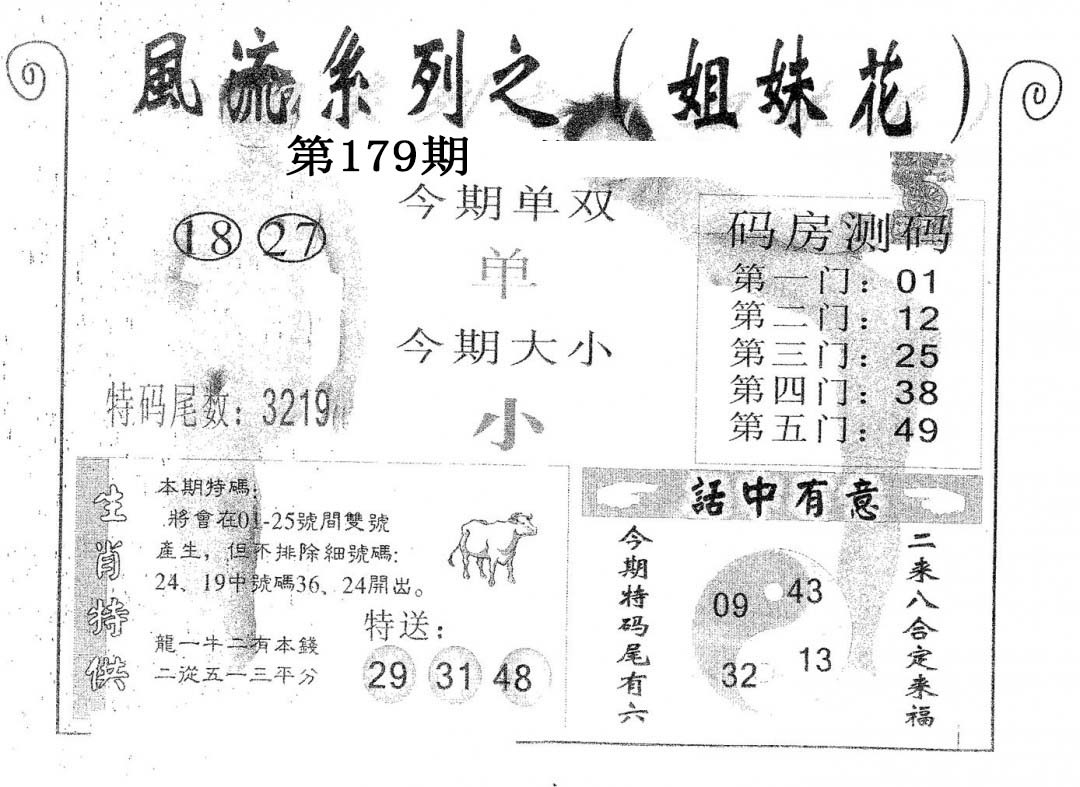 風流系列之（姐妹花）
第179期
18 27
今期单双
单
今期大小
小
特码尾数：3219
码房测码
第一门：01
第二门：12
第三门：25
第四门：38
第五门：49
生肖特供
本期特碼：
將會在01-25號間雙號
產生，但不排除細號碼：
24、19中號碼36、24開出。
龍一牛二有本錢
二從五一三平分
特送：
29 31 48
話中有意
今期特码尾有六
09 43
32 13
二来八合定来福